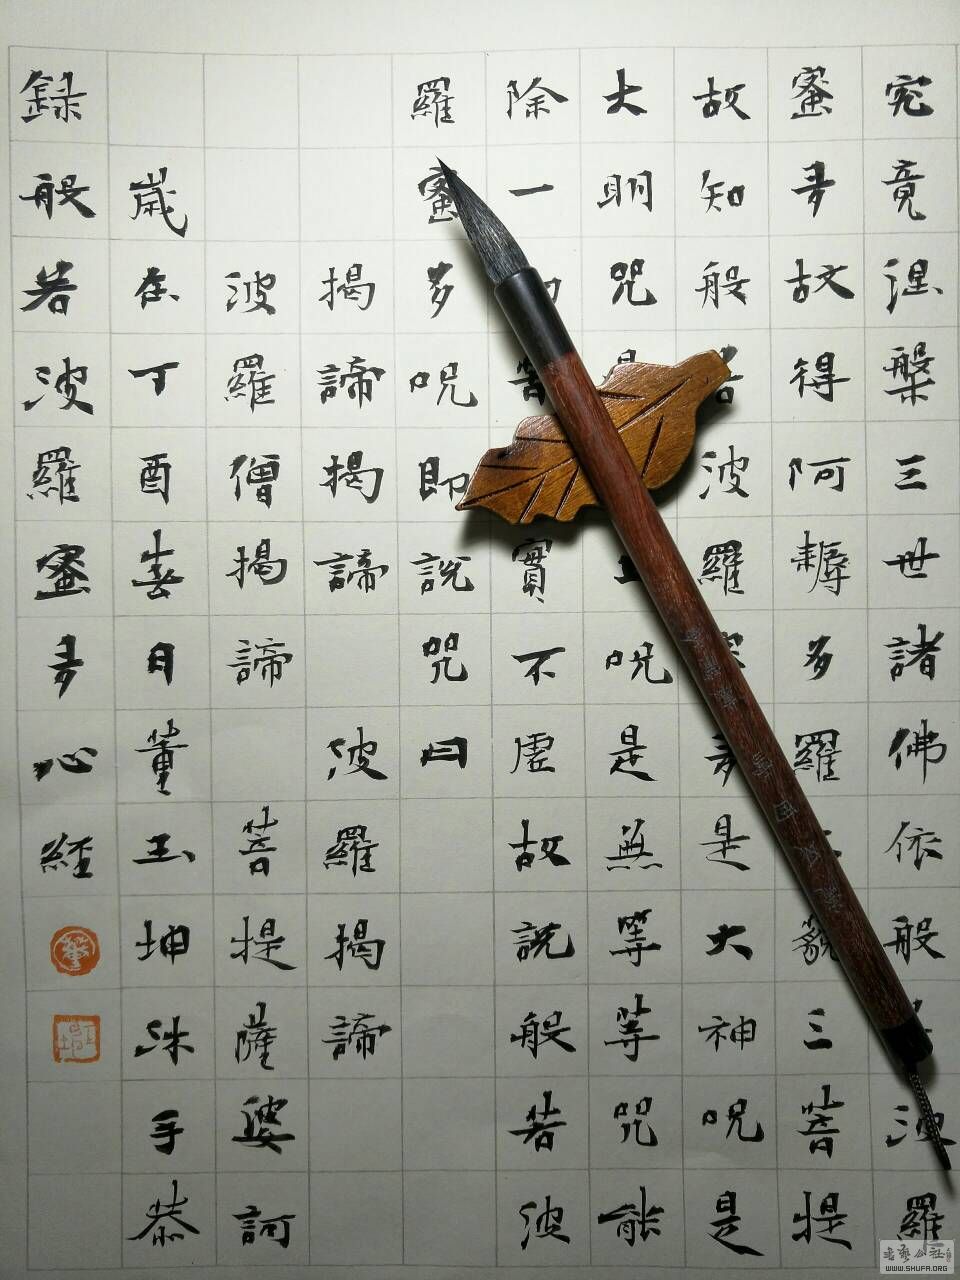 究竟涅槃三世諸佛依般波羅
蜜多故得阿耨多羅藐三菩提
故知般若波羅多是大神呪是
大明咒是上呪是無等等咒能
除一切苦實不虛故說般若波
羅蜜多呪即說咒曰
揭諦揭諦 波羅揭諦
波羅僧揭諦 菩提薩婆訶
歲在丁酉春日董玉坤沐手恭
録般若波羅蜜多心経
WWW.SHUFA.ORG